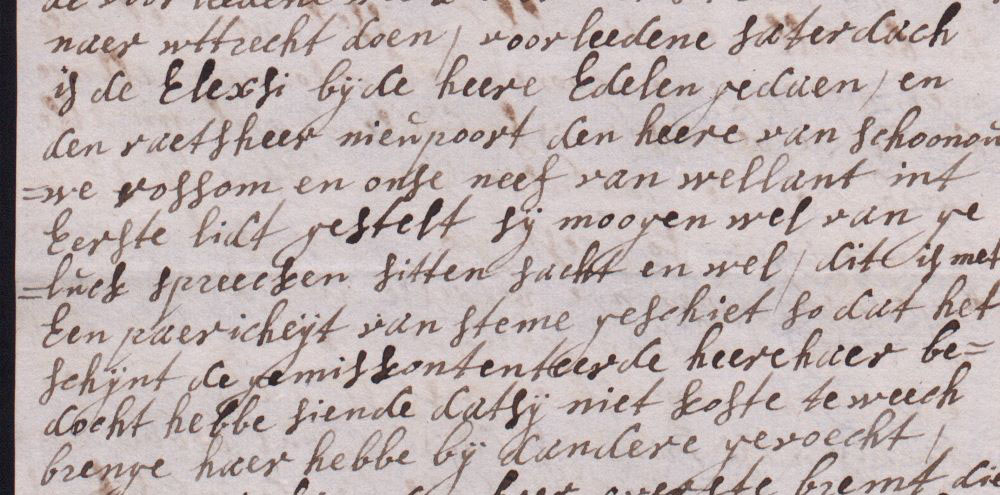 naer wttrecht doen / voorleedene saterdach
is de Elexsi bijde heere Edelen gedaen / en
den raetsheer nieupoort den heere van schoonou
=we rossom en onse neef van wellant int
Eerste lidt gestelt sij moogen wel van ge
=luck spreecken sitten sacht en wel / dit is met
Een paericheijt van steme geschiet so dat het
schijnt de gemiskontenteerde heere haer be=
docht hebbe siende datsij niet koste te weech
brenge haer hebbe bij dandere gevoecht /